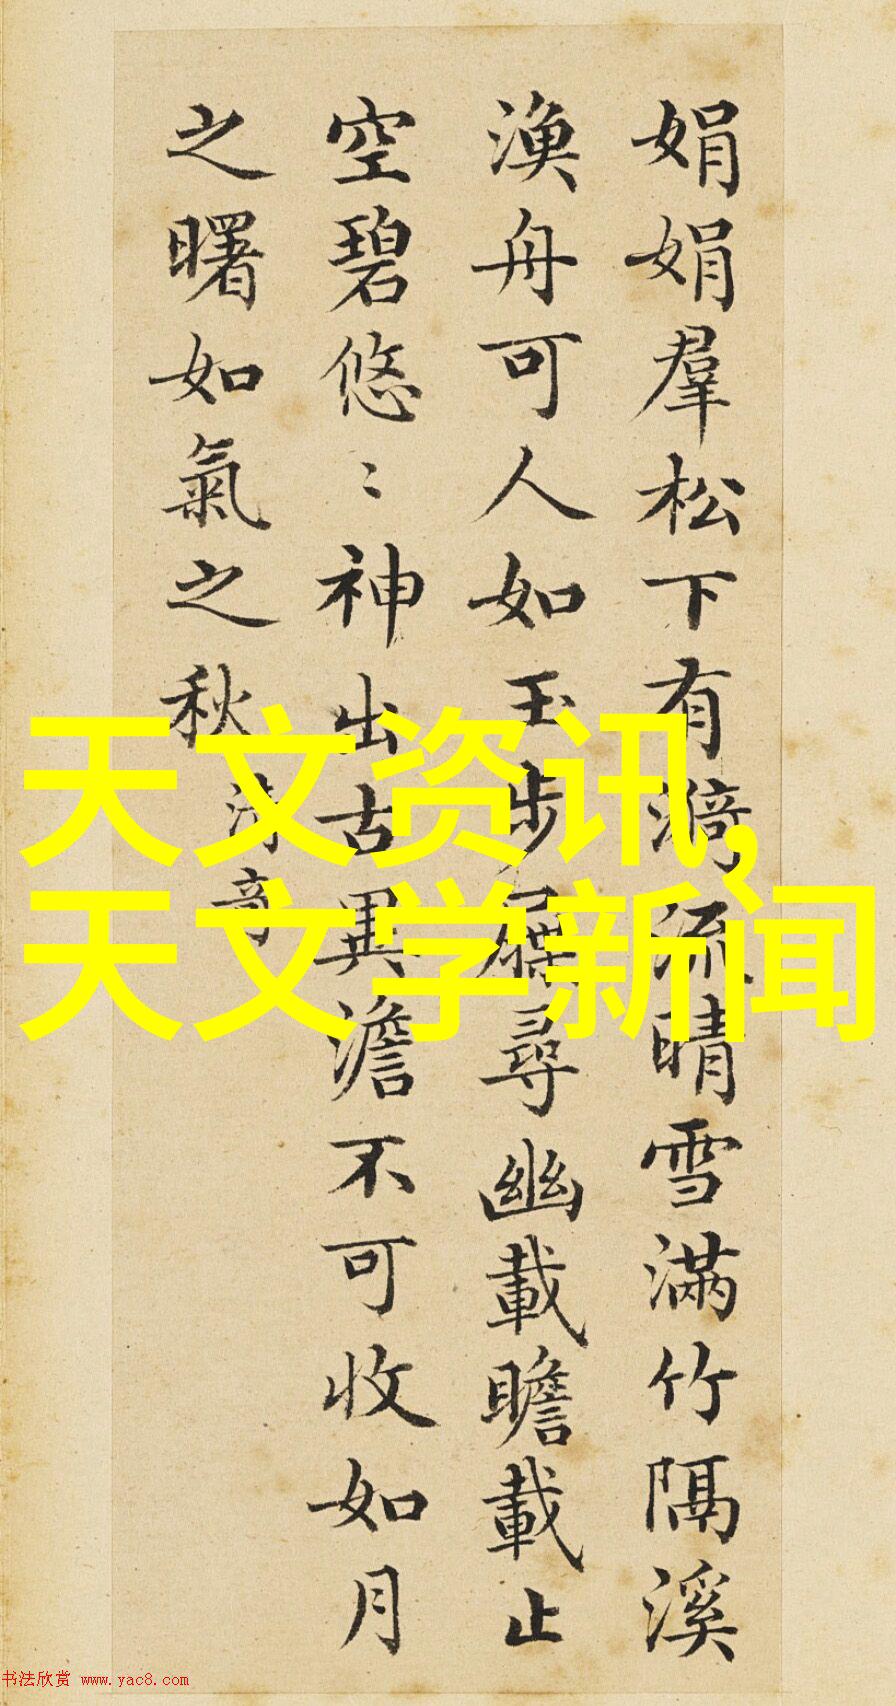 娟娟羣松下有漪流晴雪滿竹隔溪
漁舟可人如玉步屧尋幽載瞻載止
空碧悠〻神出古異澹不可收如月
之曙如氣之秋
清奇
天文资讯,
天文学新闻
书法欣赏 www.yac8.com